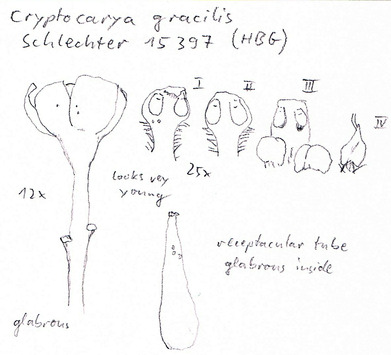 Cryptocarya gracilis
Schlechter 15397 (HBG)
I
II
III
IV
12x
looks very
young
25x
receptacular tube
glabrous inside
glabrous